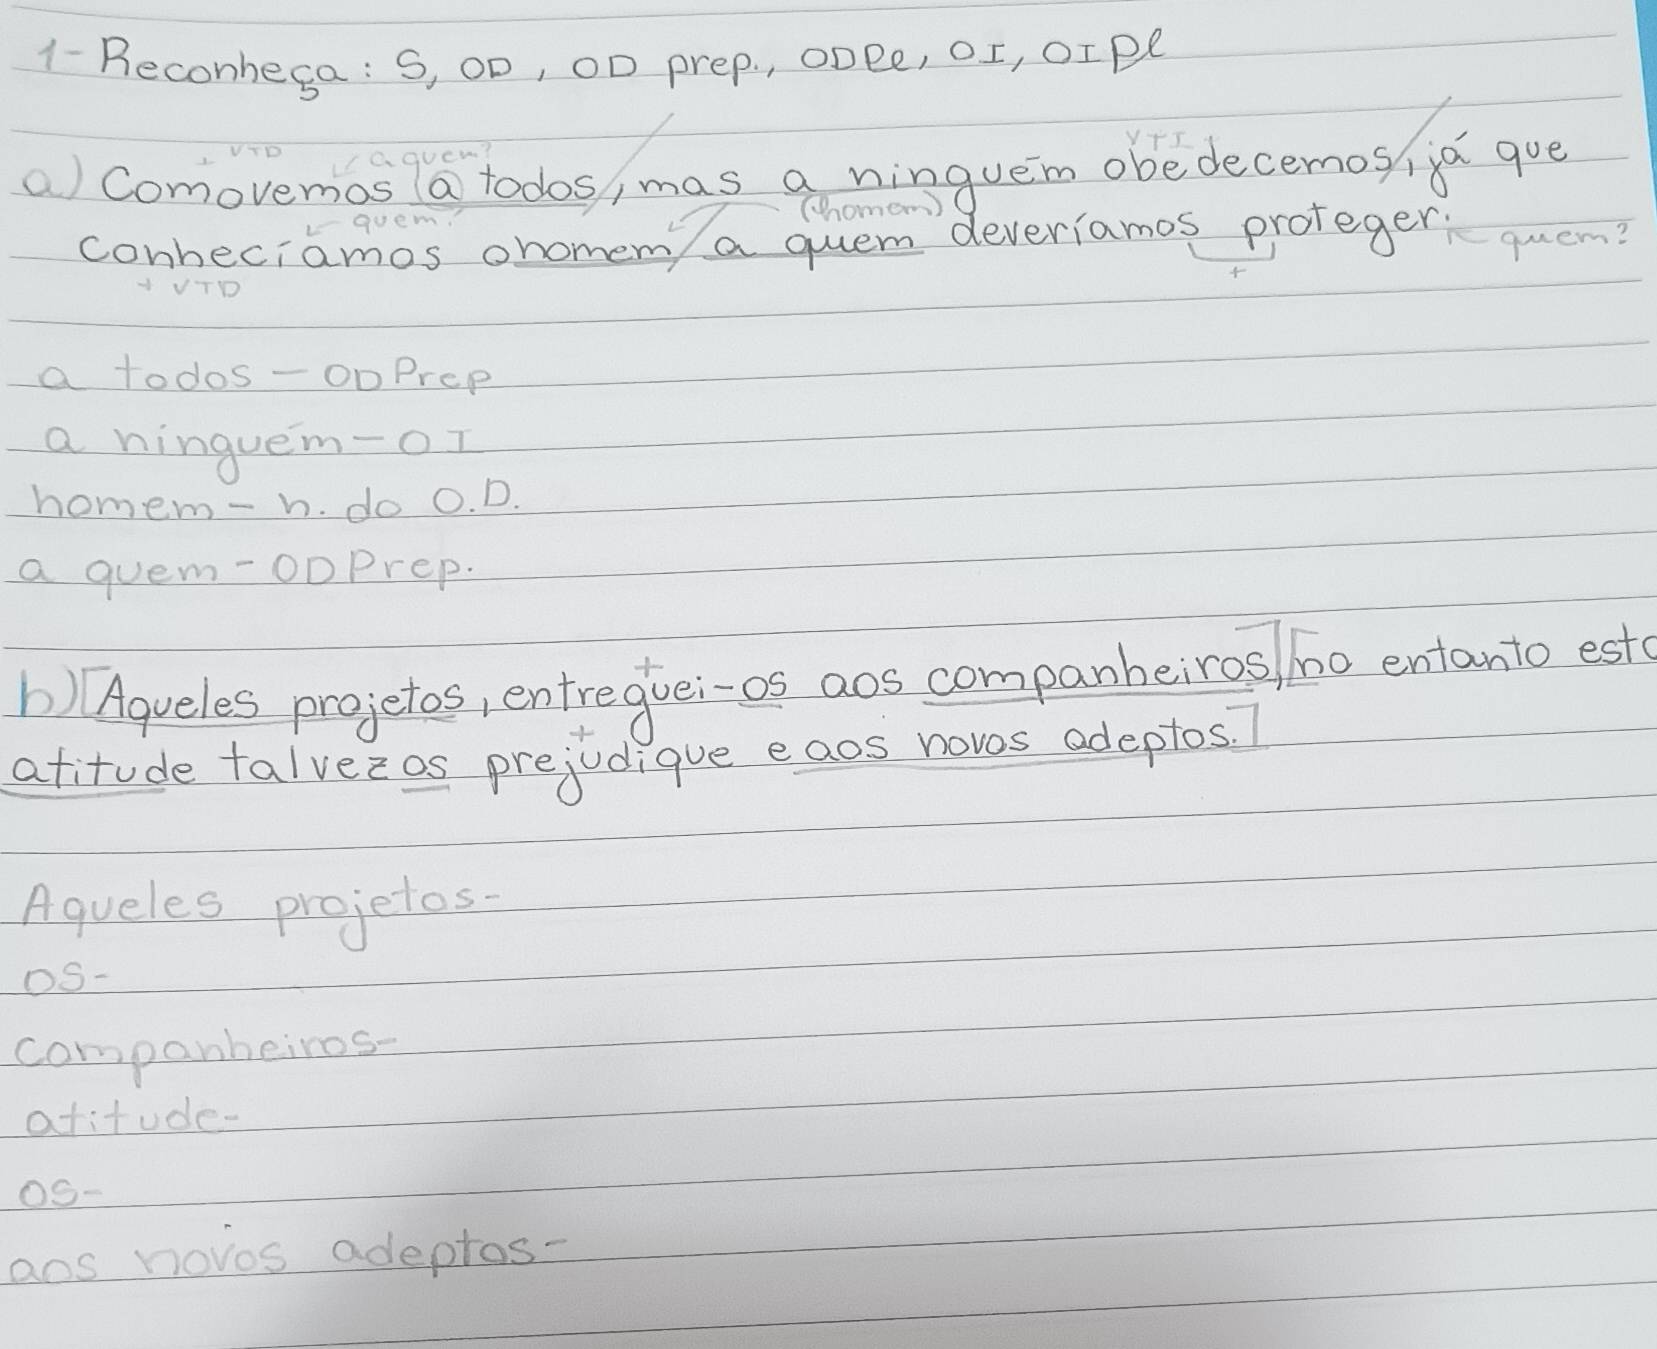 1- Reconheça: S, OD, OD prep., ODPl, OI, OIPl
+ VTD a quem? VTI +
a) Comovemos a todos, mas a ninguém obedecemos, já que
quem? (homem)
conhecíamos o homem a quem deveríamos proteger. quem?
+ VTD +
a todos - OD Prep
a ninguém - OI
homem - n. do O.D.
a quem - OD Prep.
b) [Aqueles projetos, entreguei-os aos companheiros,] [no entanto esta
atitude talvez os prejudique e aos novos adeptos.]
Aqueles projetos-
os-
companheiros-
atitude-
os-
aos novos adeptos-